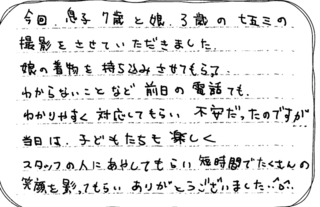 今回、息子7歳と娘、3歳の七五三の、
撮影をさせていただきました。
娘の着物を持ち込みさせてもらって、
わからないことなど前日の電話でも、
わかりやすく対応してもらい不安だったのですが
当日は、子どもたちも楽しく
スタッフの人にあやしてもらい短時間でたくさんの
笑顔を影ってもらいありがとうございました